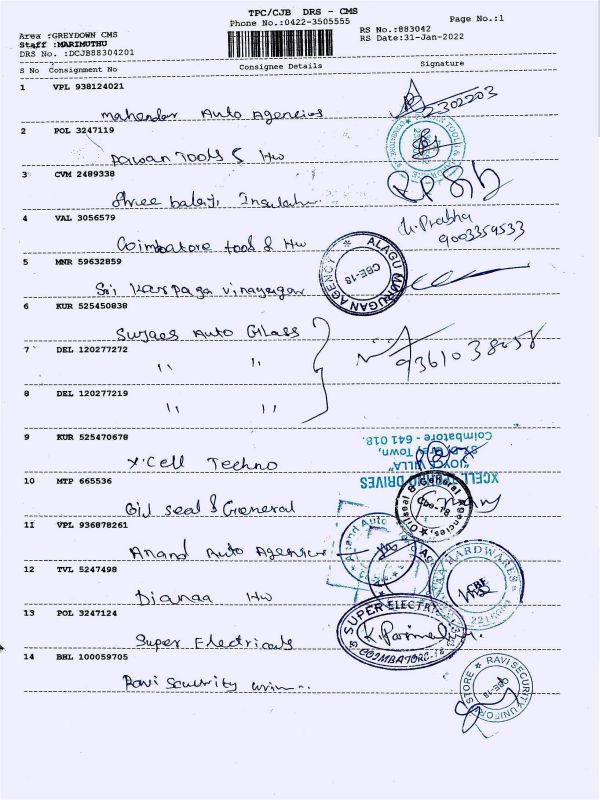 TPC/CJB DRS - CMS
Phone No.:0422-3505555
Page No.:1
Area :GREYDOWN CMS
RS No.:883042
Staff :MARIMUTHU
RS Date:31-Jan-2022
DRS No. :DCJB88304201
S No Consignment No Consignee Details Signature
1 VPL 938124021
Mahender Auto Agencies
2302203
2 POL 3247119
Pawan Tools & Hw
3 CVM 2489338
Shree balaji
4 VAL 3056579
Coimbatore tool & Hw
Prabha
9003359533
5 MNR 59632859
Sri Karpaga vinayagar
ALAGU MURUGAN AGENCY
CBE-18
6 KUR 525450838
Auto Glass
7 DEL 120277272
" "
8 DEL 120277219
" "
9 KUR 525470678
X'Cell Techno
XCELL DRIVES
"JOYCE VILLA"
Town,
Coimbatore - 641 018.
10 MTP 665536
Oil seal & General
Oilseal & General Agencies,
Cbe-18
11 VPL 936878261
Anand Auto Agencies
Anand Auto
12 TVL 5247498
Dianaa Hw
HARDWARES
13 POL 3247124
Super Electricals
SUPER ELECTRIC
COIMBATORE-18
14 BHL 100059705
Ravi Security
RAVI SECURITY UNIFORM STORE
CBE-18